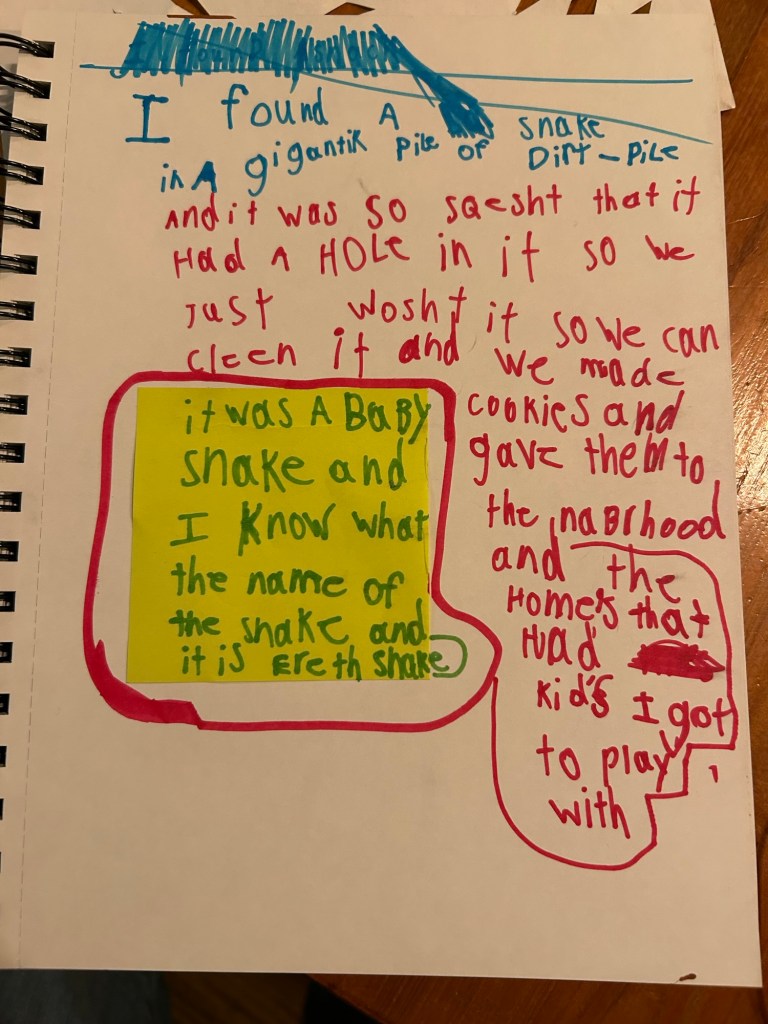 I found A snake
in A gigantik pile of Dirt-Pile
And it was so sqesht that it
Had A HOLe in it so we
Just wosht it so we can
cleen it and we made
cookies and
gave them to
the naBrhood
and the
Homes that
Had
kid's I got
to play
with
it was A BaBy
snake and
I know what
the name of
the snake and
it is Ereth snake